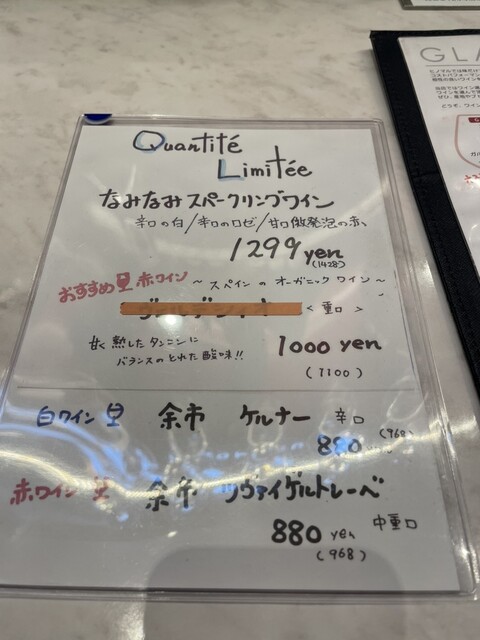 Quantité
Limitée
なみなみスパークリングワイン
辛口の白/辛口のロゼ/甘口微発泡の赤
1299 yen
(1428)
おすすめ 赤ワイン ~ スペインのオーガニックワイン ~
<重口>
甘く熟したタンニンに
バランスのとれた酸味!!
1000 yen
(1100)
白ワイン 余市 ケルナー 辛口
880 (968)
赤ワイン 余市 ツヴァイゲルトレーベ
880 yen 中重口
(968)
GLA